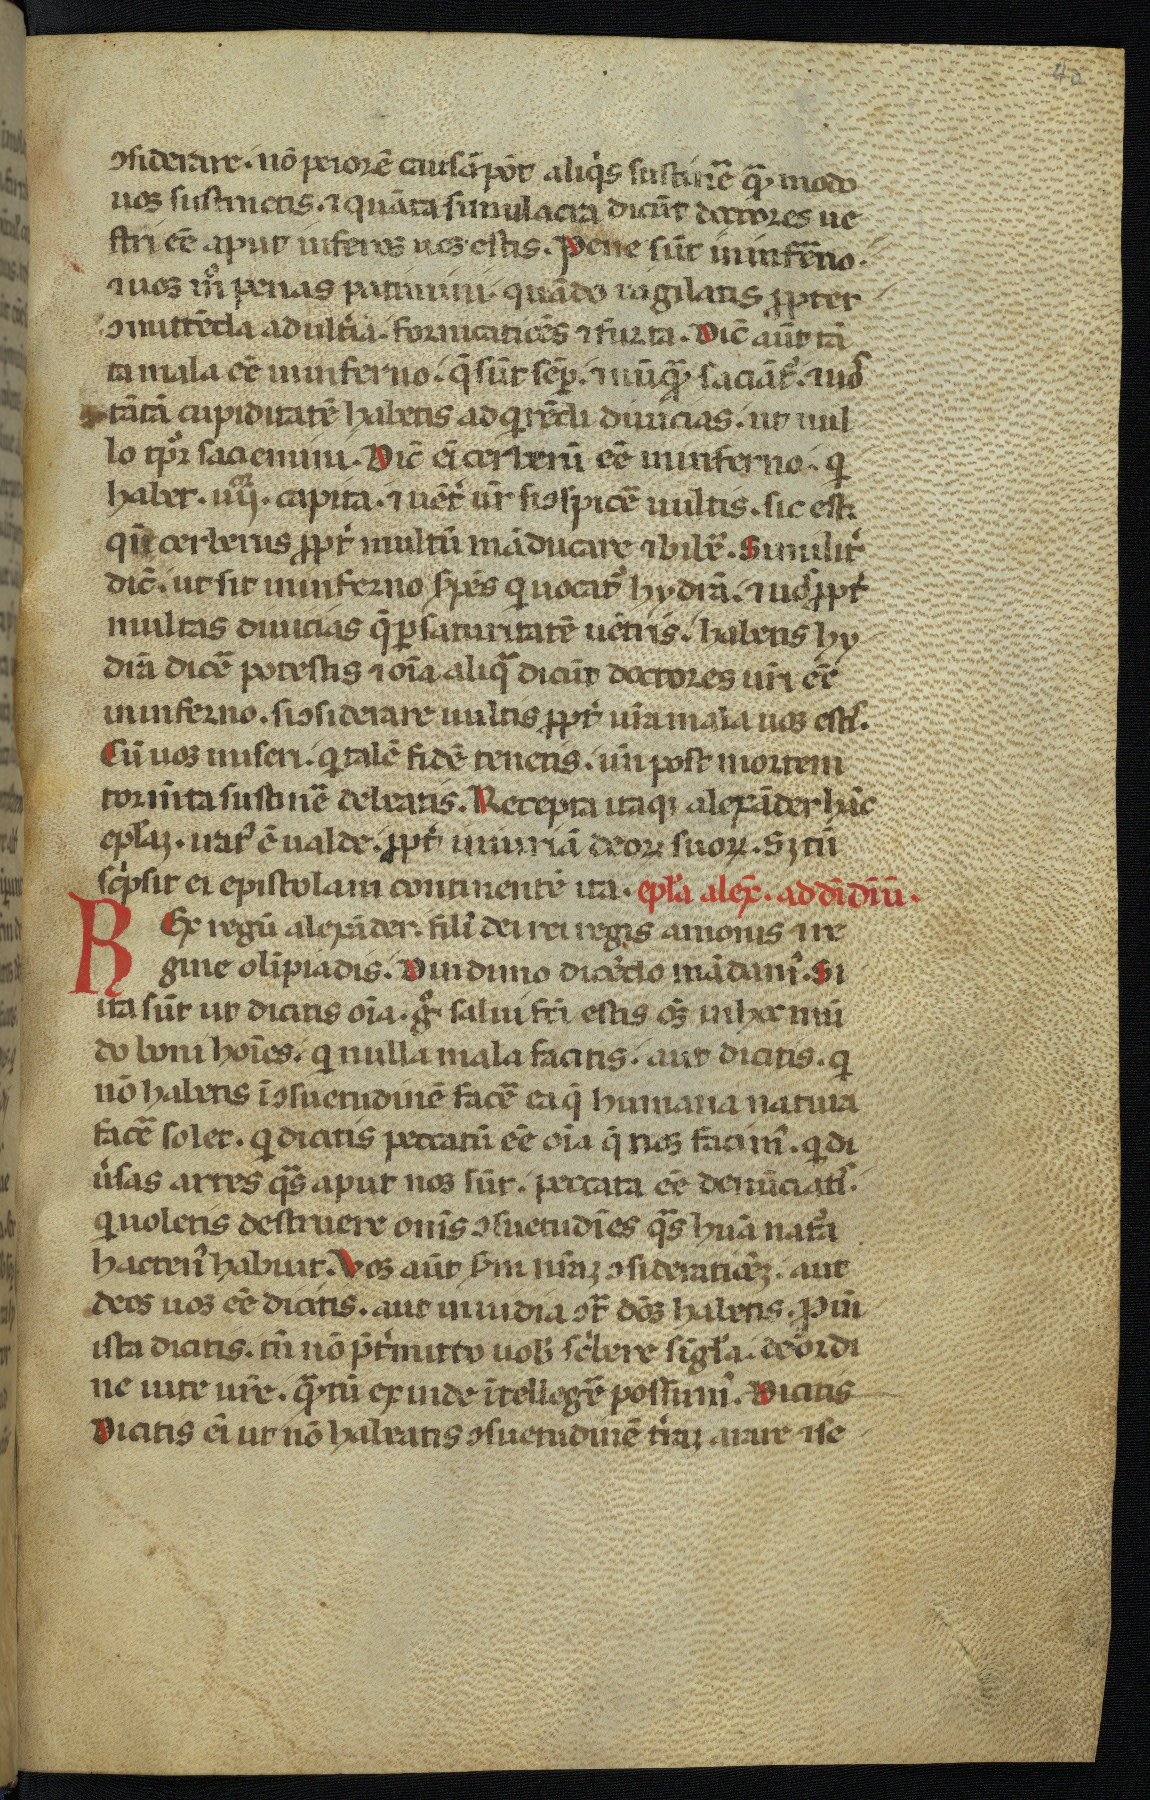 ↄsiderare. nō peiorē causā pōt aliq̇s sustinē̄ qͣ modo
uos sustinetis. ⁊ quāta simulacra dicūt doctores ue
stri eē aput inferos uos estis. Pene sūt in infr̄no.
⁊ uos m̊ penas patimini. quādo uigilatis ꝓpter
ↄmittēda adult̓ia. fornicatiōes ⁊ furta. Dic̄ aūt tā
ta mala eē in inferno. q̄ sūt sēp. ⁊ nūqͣ saciāt᷑. ⁊ uos
tātā cupiditatē habetis adq̇rēdi diuicias. ut nul
lo tp̄r saciemini. Dic̄ ei cerberū eē in inferno. q̇
habet. iij. capita. ⁊ uēt̓ ur̄ si ↄspicē̄ uultis. sic est
q̄si cerberus ꝓpt̓ multū māducare ⁊ bibē̄. Similit̓
dic̄. ut sit in inferno sp̄es q̇ uocat᷑ hydra. ⁊ uos ꝓpt̓
multas diuicias q̄ ꝑ saturitatē uētris. habetis hy
drā dicē̄ potestis ⁊ oīa aliqͣ dicūt doctores ur̄i eē
in inferno. si ↄsiderare uultis ꝓpt̓ ur̄a mala uos estis.
Cū uos miseri. q̇ talē fidē tenetis. uñ post mortem
torm̄ta sustinē̄ debeatis. Recepta itaqꝫ alexāder hāc
epl̄aꝫ. irat᷑ ē ualde. ꝓpt̓ iniuriā deoꝝ suoꝝ. Sꝫ tn̄
sc̓psit ei epistolam continentē ita. epl̄a alex̄. ad dīdīmū.
REx regū alexāder. fili᷑ dei rei regis amonis ⁊ re
gine olīpiadis. Dindimo dicēdo mādam᷑. Si
ita sūt ut dicitis oīa. g̊ salui fc̄i estis os̄ in hoc mū
do boni hoīes. q̇ nulla mala facitis. aut dicitis. q̇
nō habetis ī ↄsuetudinē facē̄ ea q̄ humana natura
facē̄ solet. q̇ dicitis peccatū eē oīa q̄ nos facim᷑. q̇ di
u̓sas artes qͣs aput nos sūt. peccata eē denūciatis.
q̇ uoletis destruere om̄s ↄsuetudīes qͣs huā nat᷑a
hacten᷑ habuit. Vos aūt sm̄ nr̄aꝫ ↄsideratiōeꝫ. aut
deos uos eē dicitis. aut inuidia ↄt̄ dōs habetis. P̱ in
ista dicitis. tn̄ nō p̄t̓mitto uob᷑ sc̓bere sīgl̄a. de ordi
ne uite ur̄e. qͣtū exinde ītellegē̄ possum᷑. Dicitis
Dicitis ei ut nō habeatis ↄsuetudinē t̓raꝫ arare ⁊ se